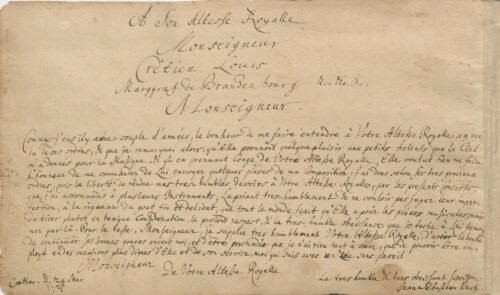 A Son Altesse Royalle
Monseigneur
Crétien Louis
Marggraf de Brandenbourg &c. &c. &c.
Monseigneur.
Comme j'eus il y a une couple d'années, le bonheur de me faire entendre à Vôtre Altesse Royalle, en ver
tu de ses ordres, & que je remarquai alors, qu'Elle prennoit quelque plaisir aux petits talents que le Ciel
m'a donnés pour la Musique, & qu'en prennant Conge de Vôtre Altesse Royalle, Elle voulut bien me faire
l'honneur de me commander de Lui envoyer quelques pieces de ma Composition; j'ai donc selon ses tres gracieux
ordres, pris la liberté de rendre mes tres-humbles devoirs à Vôtre Altesse Royalle, par les presents Concerts,
que j'ai accommodés à plusieurs Instruments; La priant tres-humblement de ne vouloir pas juger leur imper-
fection, à la rigueur du gout fin et delicat, que tout le monde sçait qu'Elle a pour les piéces musicales; mais
de tirer plutot en benigne Consideration, le profond respect, & la tres-humble obeissance que je tache à Lui temoi
gner par là. Pour le reste, Monseigneur, je supplie tres humblement Vôtre Altesse Royalle, d'avoir la bonté
de continüer ses bonnes graces envers moi, et d'être persuadée que je n'ai rien tant à cœur, que de pouvoir être em-
ployé en des occasions plus dignes d'Elle et de son service, moi qui suis avec un zele sans pareil
Monseigneur
De Vôtre Altesse Royalle
Coethen. d. 24 Mar
1721
Le tres humble & tres obeissant serviteur
Jean Sebastien Bach.